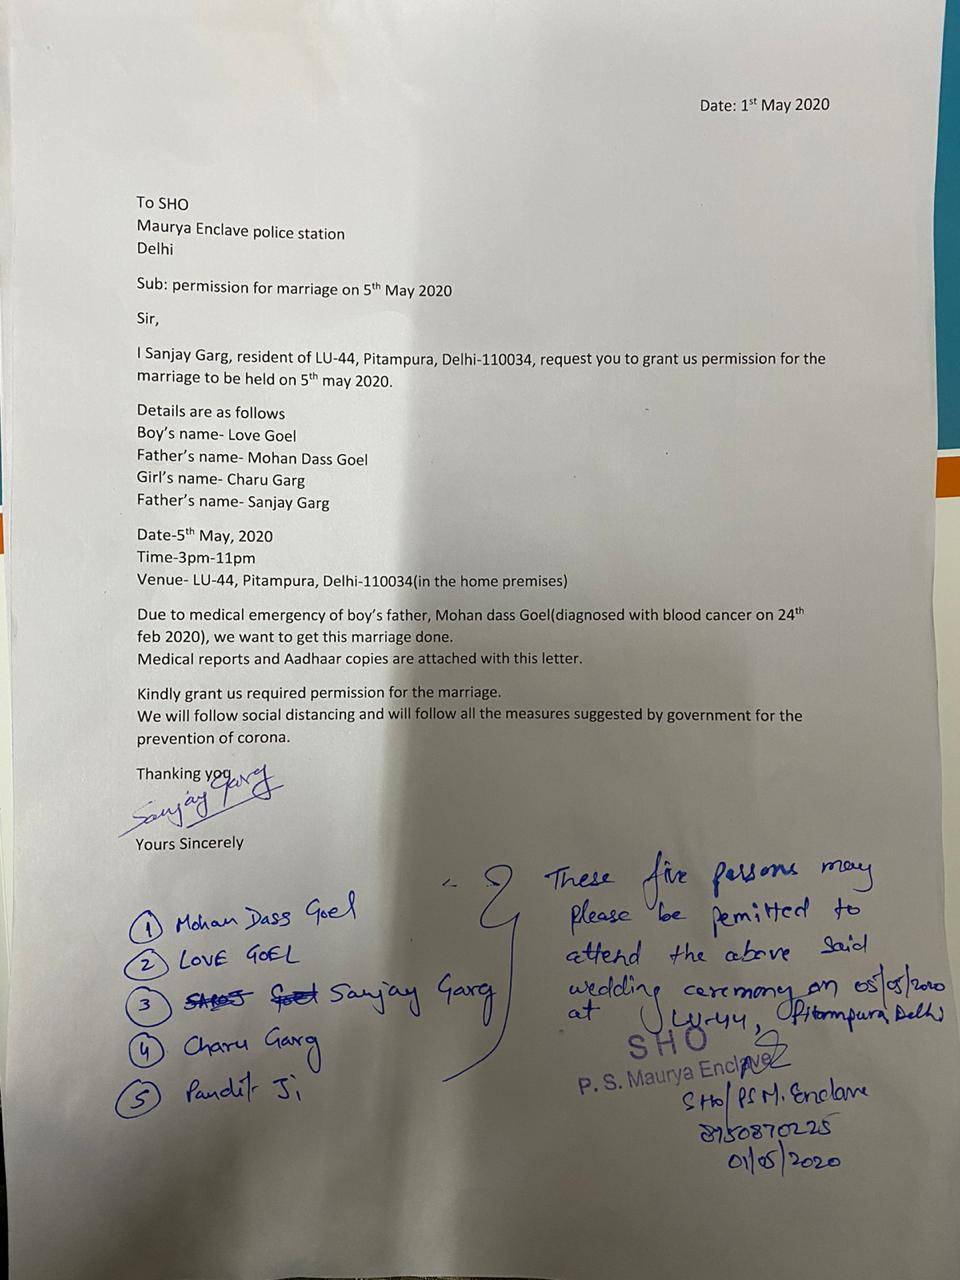 Date: 1st May 2020
To SHO
Maurya Enclave police station
Delhi
Sub: permission for marriage on 5th May 2020
Sir,
I Sanjay Garg, resident of LU-44, Pitampura, Delhi-110034, request you to grant us permission for the
marriage to be held on 5th may 2020.
Details are as follows
Boy's name- Love Goel
Father's name- Mohan Dass Goel
Girl's name- Charu Garg
Father's name- Sanjay Garg
Date-5th May, 2020
Time-3pm-11pm
Venue- LU-44, Pitampura, Delhi-110034(in the home premises)
Due to medical emergency of boy's father, Mohan dass Goel(diagnosed with blood cancer on 24th
feb 2020), we want to get this marriage done.
Medical reports and Aadhaar copies are attached with this letter.
Kindly grant us required permission for the marriage.
We will follow social distancing and will follow all the measures suggested by government for the
prevention of corona.
Thanking you
Sanjay Garg
Yours Sincerely
1 Mohan Dass Goel
2 LOVE GOEL
3 Sanjay Garg
4 Charu Garg
5 Pandit Ji
These five persons may
please be pemitted to
attend the above said
wedding ceremony on 05/05/2020
at LU-44, Pitampura, Delhi
SHO
P. S. Maurya Enclave
SHO/PS M. Enclave
8750870225
01/05/2020